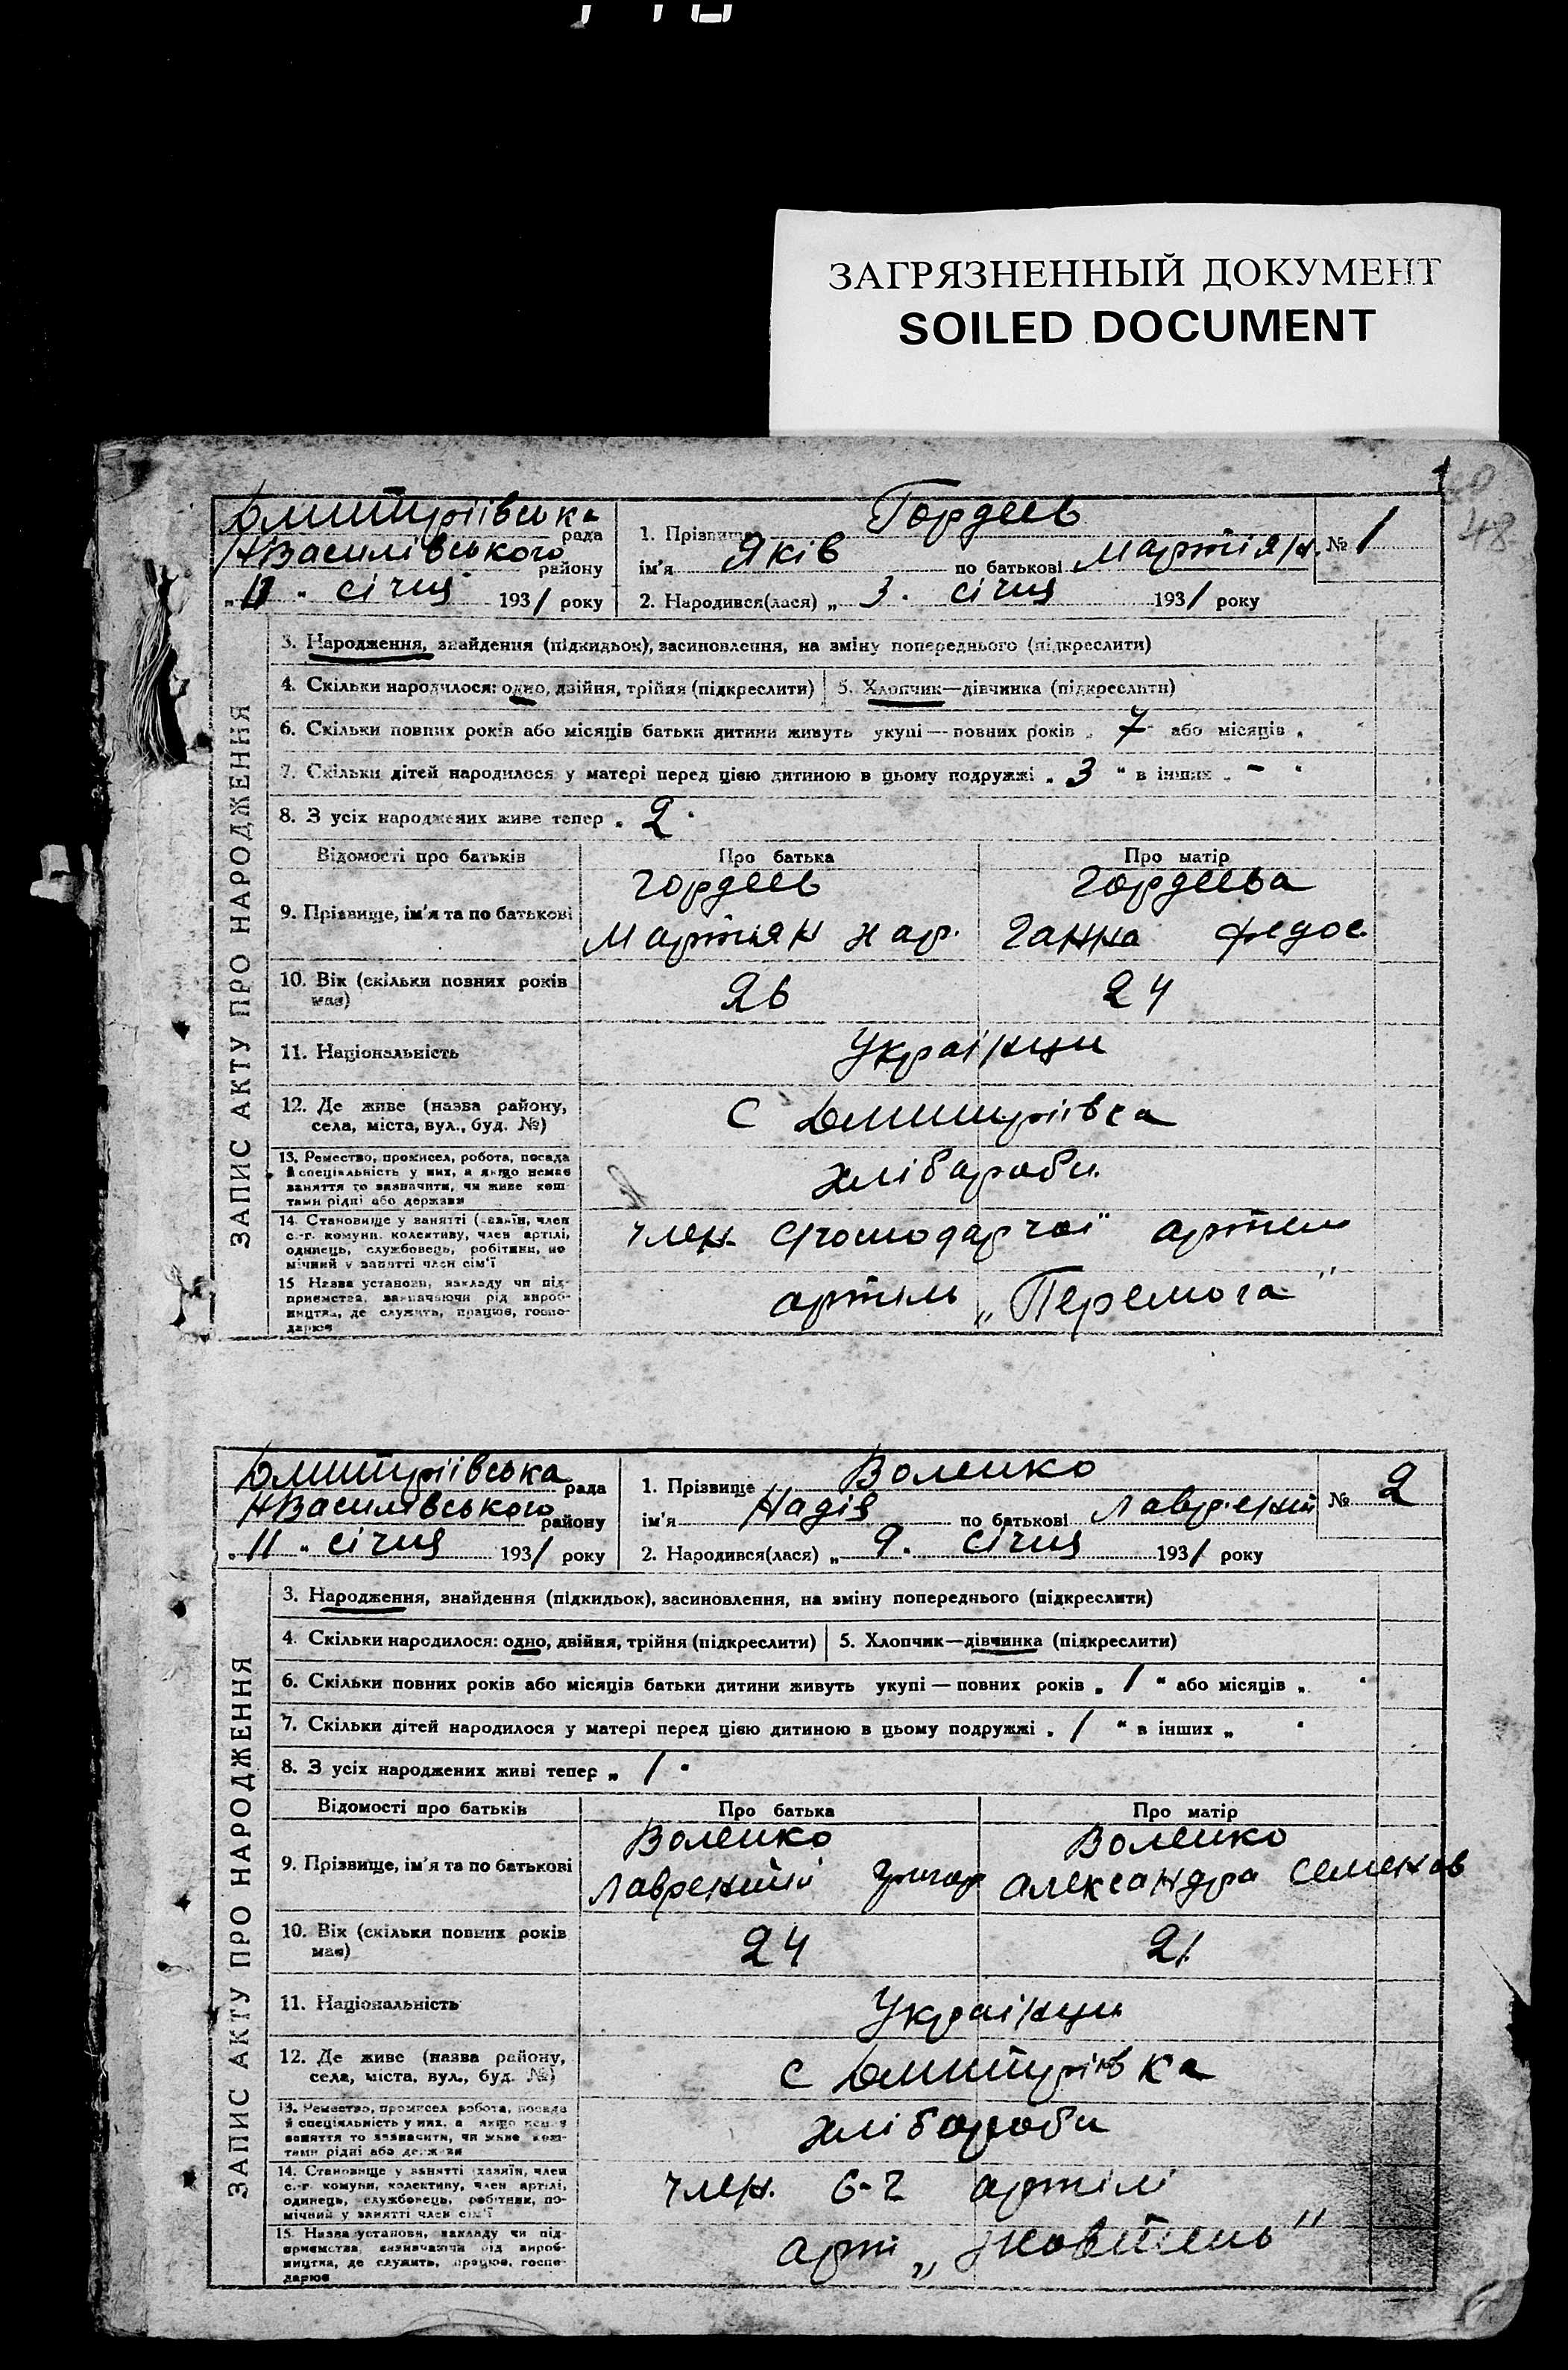 ЗАГРЯЗНЕННЫЙ ДОКУМЕНТ
SOILED DOCUMENT
1
48
ЗАПИС АКТУ ПРО НАРОДЖЕННЯ
Дмитріївська рада
НВасилівського району
„11" січня 1931 року
1. Прізвище Гордеев
ім'я Яків по батькові Мартіян.
№ 1
2. Народився(лася) „3" січня 1931 року
3. Народження, знайдення (підкидьок), засиновлення, на зміну попереднього (підкреслити)
4. Скільки народилося: одно, двійня, трійня (підкреслити) 5. Хлопчик—дівчинка (підкреслити)
6. Скільки повних років або місяців батьки дитини живуть укупі — повних років „7" або місяців „ "
7. Скільки дітей народилося у матері перед цією дитиною в цьому подружжі „3" в інших „-"
8. З усіх народжених живе тепер „2"
Відомості про батьків Про батька Про матір
9. Прізвище, ім'я та по батькові
Гордеев
Мартіян Нар.
Гордеева
Ганна Федос.
10. Вік (скільки повних років має) 26 24
11. Національність Українци
12. Де живе (назва району, села, міста, вул., буд. №) С Дмитріївка
13. Ремество, промисел, робота, посада
й спеціяльність у них, а якщо немає
заняття то зазначити, чи живе кош-
тами рідні або держави
хлібароби
14. Становище у занятті (хазяїн, член
с.-г. комуни, колективу, член артілі,
одинець, службовець, робітник, по-
мічний у занятті член сім'ї
член с/господарчої артели
15 Назва установи, закладу чи під-
приємства, зазначаючи рід вироб-
ництва, де служить, працює, госпо-
дарює
артіль „Перемога"
ЗАПИС АКТУ ПРО НАРОДЖЕННЯ
Дмитріївська рада
НВасилівського району
„11" січня 1931 року
1. Прізвище Воленко
ім'я Надія по батькові Лаврентій
№ 2
2. Народився(лася) „9" січня 1931 року
3. Народження, знайдення (підкидьок), засиновлення, на зміну попереднього (підкреслити)
4. Скільки народилося: одно, двійня, трійня (підкреслити) 5. Хлопчик—дівчинка (підкреслити)
6. Скільки повних років або місяців батьки дитини живуть укупі — повних років „1" або місяців „ "
7. Скільки дітей народилося у матері перед цією дитиною в цьому подружжі „1" в інших „ "
8. З усіх народжених живі тепер „1"
Відомості про батьків Про батька Про матір
9. Прізвище, ім'я та по батькові
Воленко
Лаврентій Григор
Воленко
Александра Семенов
10. Вік (скільки повних років має) 24 21
11. Національність Українци
12. Де живе (назва району, села, міста, вул., буд. №) С Дмитрівка
13. Ремество, промисел робота, посада
й спеціяльність у них, а якщо немає
заняття то зазначити, чи живе кош-
тами рідні або держави
хлібороби
14. Становище у занятті (хазяїн, член
с.-г. комуни, колективу, член артілі,
одинець, службовець, робітник, по-
мічний у занятті член сім'ї
член. с-г артілі
15. Назва установи, закладу чи під-
приємства, зазначаючи рід вироб-
ництва, де служить, працює, госпо-
дарює
арті „Жовтень"